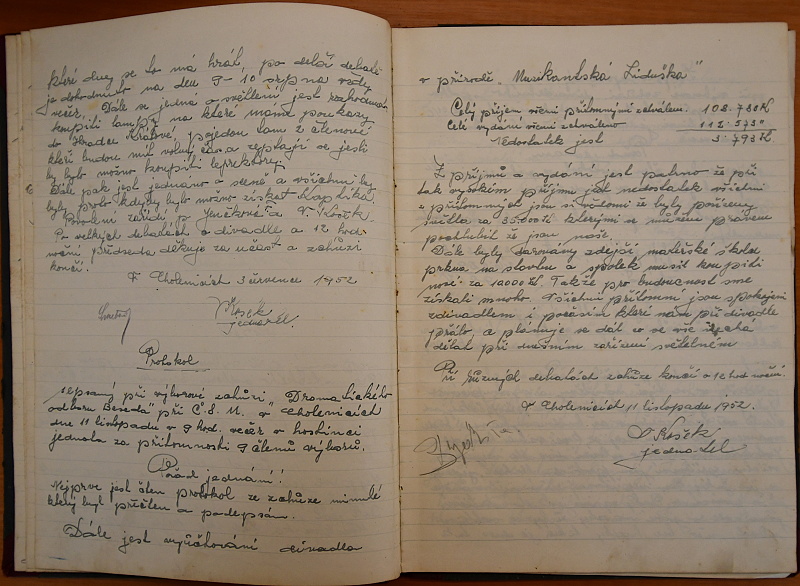 které dny se to má hrát, po delší debatě
je dohodnuto na den 9–10 srpna vždy
večer. Dále se jedná o světlení jest rozhodnuto
koupiti lampy na které máme poukazy
do Hradce Králové, pojedou tam z členové
kteří budou míti volný čas a zeptají se jestli
by bylo možno koupiti
Dále pak jest jednáno o scéně a všichni by
byly proto kdyby bylo možno získat Kaplíka,
Povolení zařídí p. Jenčková a V. Kosek
Po velkých debatách o divadle a 12 hod.
noční předseda děkuje za účast a schůzi
končí.
V Cholenicích 3 července 1952
V Kosek
jednatel.
Protokol
sepsaný při výborové schůzi "Dramatického
odboru Beseda" při Č.S.M. v Cholenicích
dne 11 listopadu v 9 hod. večer v hostinci
jednota za přítomnosti 9 členů výborů.
Pořad jednání!
Nejprve jest čten protokol ze schůze minulé
který byl přečten a podepsán.
Dále jest vyúčtování divadla
v přírodě „Muzikantská Liduška"
Celý příjem všemi přítomnými schválem. 108.780 Kč
Celé vydání všemi schváleno 112.573 "
Nedostatek jest 3.793 Kč
Z příjmů a vydání jest patrno že při
tak vysokém příjmu jest nedostatek všichni
z přítomných jsou si vědomi že byly pořízeny
světla za 35.000 Kč kterými se můžem právem
pochlubit že jsou naše.
Dále byly darovány zdejší mateřské škole
prkna na stavbu a spolek musil koupiti
nové za 12000 Kč. Takže pro budoucnost sme
získali mnoho. Všichni přítomní jsou spokojeni
zdivadlem i počasím které nám při divadle
přálo, a plánuje se dát co se vše nechá
dělat při dnešním zařízení světelném
Při různých debatách schůze končí o 12 hod noční.
V Cholenicích 11 listopadu 1952.
V Kosek
jednatel